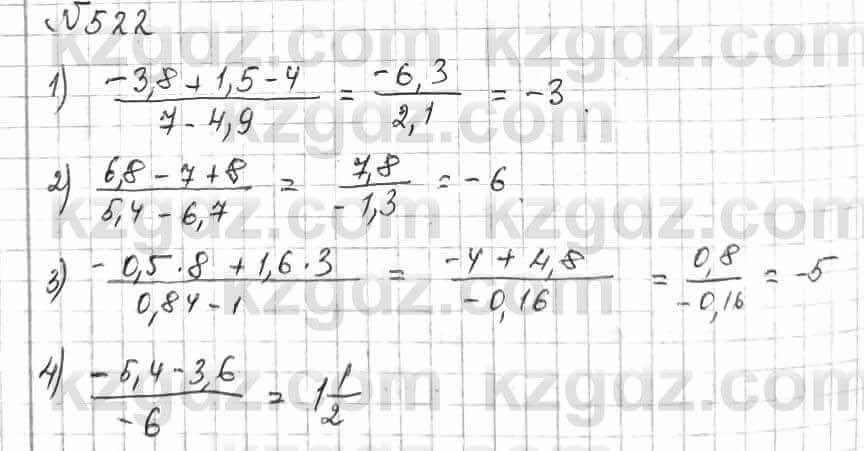 №522
1) (-3,8 + 1,5 - 4)/(7 - 4,9) = (-6,3)/(2,1) = -3.
2) (6,8 - 7 + 8)/(5,4 - 6,7) = (7,8)/(-1,3) = -6.
3) (-0,5 · 8 + 1,6 · 3)/(0,84 - 1) = (-4 + 4,8)/(-0,16) = (0,8)/(-0,16) = -5
4) (-5,4 - 3,6)/(-6) = 1 1/2
kzgdz.com kzgdz.com
kzgdz.com
kzgdz.com kzgdz.com
kzgdz.com
kzgdz.com kzgdz.com